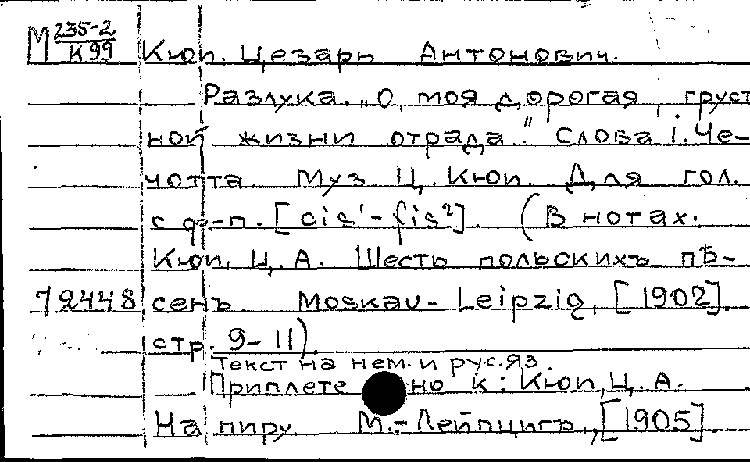 М 235-2
К 99
Кюи, Цезарь Антонович.
Разлука. „О, моя дорогая, груст
ной жизни отрада." Слова І. Че-
чотта. Муз. Ц. Кюи. Для гол.
с ф-п. [cis¹-fis²]. (В нотах:
Кюи, Ц. А. Шесть польскихъ пѣ-
72448 сенъ. Moskau-Leipzig, [1902].
стр. 9-11).
Текст на нем. и рус. яз.
Приплете но к: Кюи, Ц. А.
На пиру. М.-Лейпцигъ, [1905].